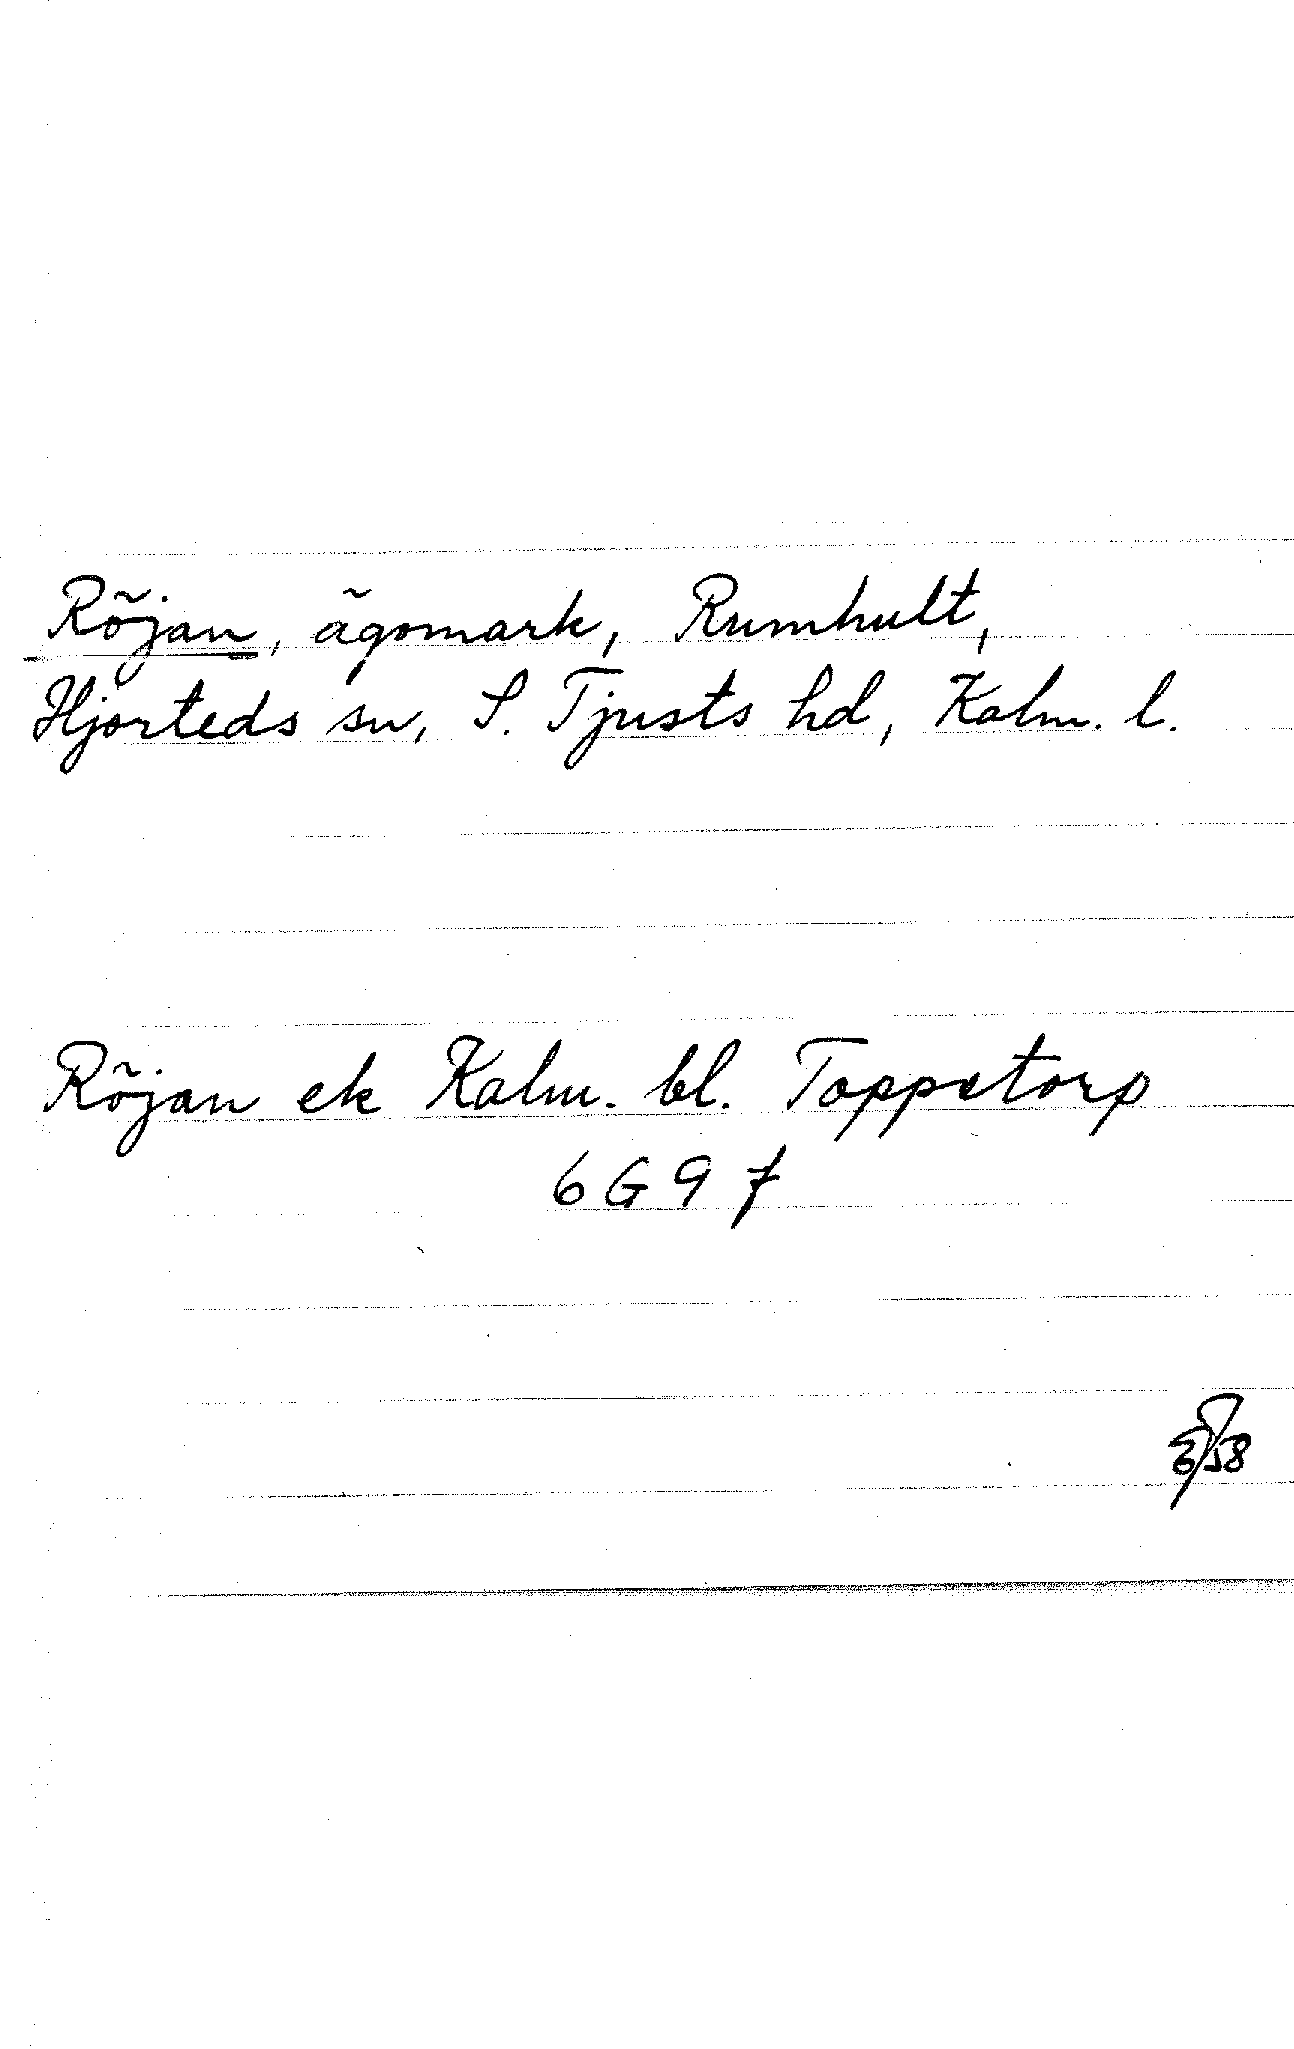 Röjan, ägomark, Rumhult,
Hjorteds sn, S. Tjusts hd, Kalm. l.
Röjan ek Kalm. bl. Toppetorp
6G 9 f